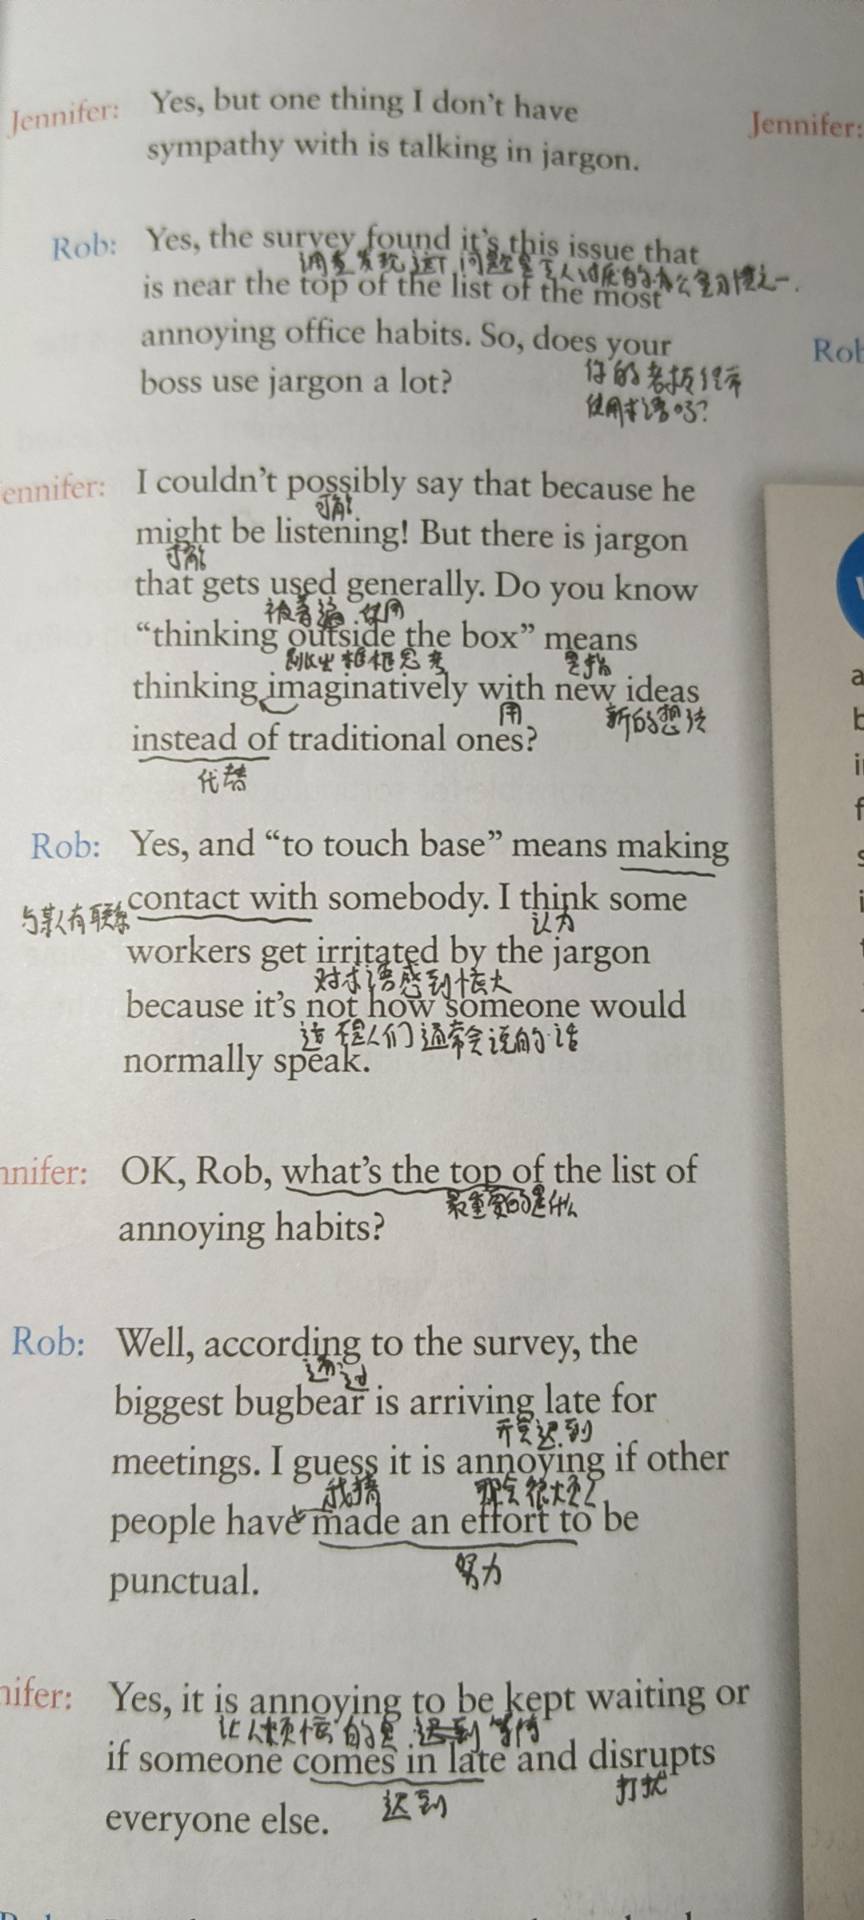 Jennifer: Yes, but one thing I don't have
sympathy with is talking in jargon.
Jennifer:
Rob: Yes, the survey found it's this issue that
调查发现这个问题是
is near the top of the list of the most
annoying office habits. So, does your
Rob
boss use jargon a lot?
你的老板经常
使用术语吗?
ennifer: I couldn't possibly say that because he
可能
might be listening! But there is jargon
可能
that gets used generally. Do you know
被普遍使用
"thinking outside the box" means
跳出框框思考
是指
thinking imaginatively with new ideas
用
新的想法
instead of traditional ones?
代替
Rob: Yes, and "to touch base" means making
contact with somebody. I think some
与某人有联系
认为
workers get irritated by the jargon
对术语感到恼火
because it's not how someone would
这不是人们通常会说的话
normally speak.
nnifer: OK, Rob, what's the top of the list of
最重要的是什么
annoying habits?
Rob: Well, according to the survey, the
通过
biggest bugbear is arriving late for
开会迟到
meetings. I guess it is annoying if other
我猜
people have made an effort to be
努力
punctual.
nifer: Yes, it is annoying to be kept waiting or
让人烦恼的是
等待
if someone comes in late and disrupts
迟到
打扰
everyone else.